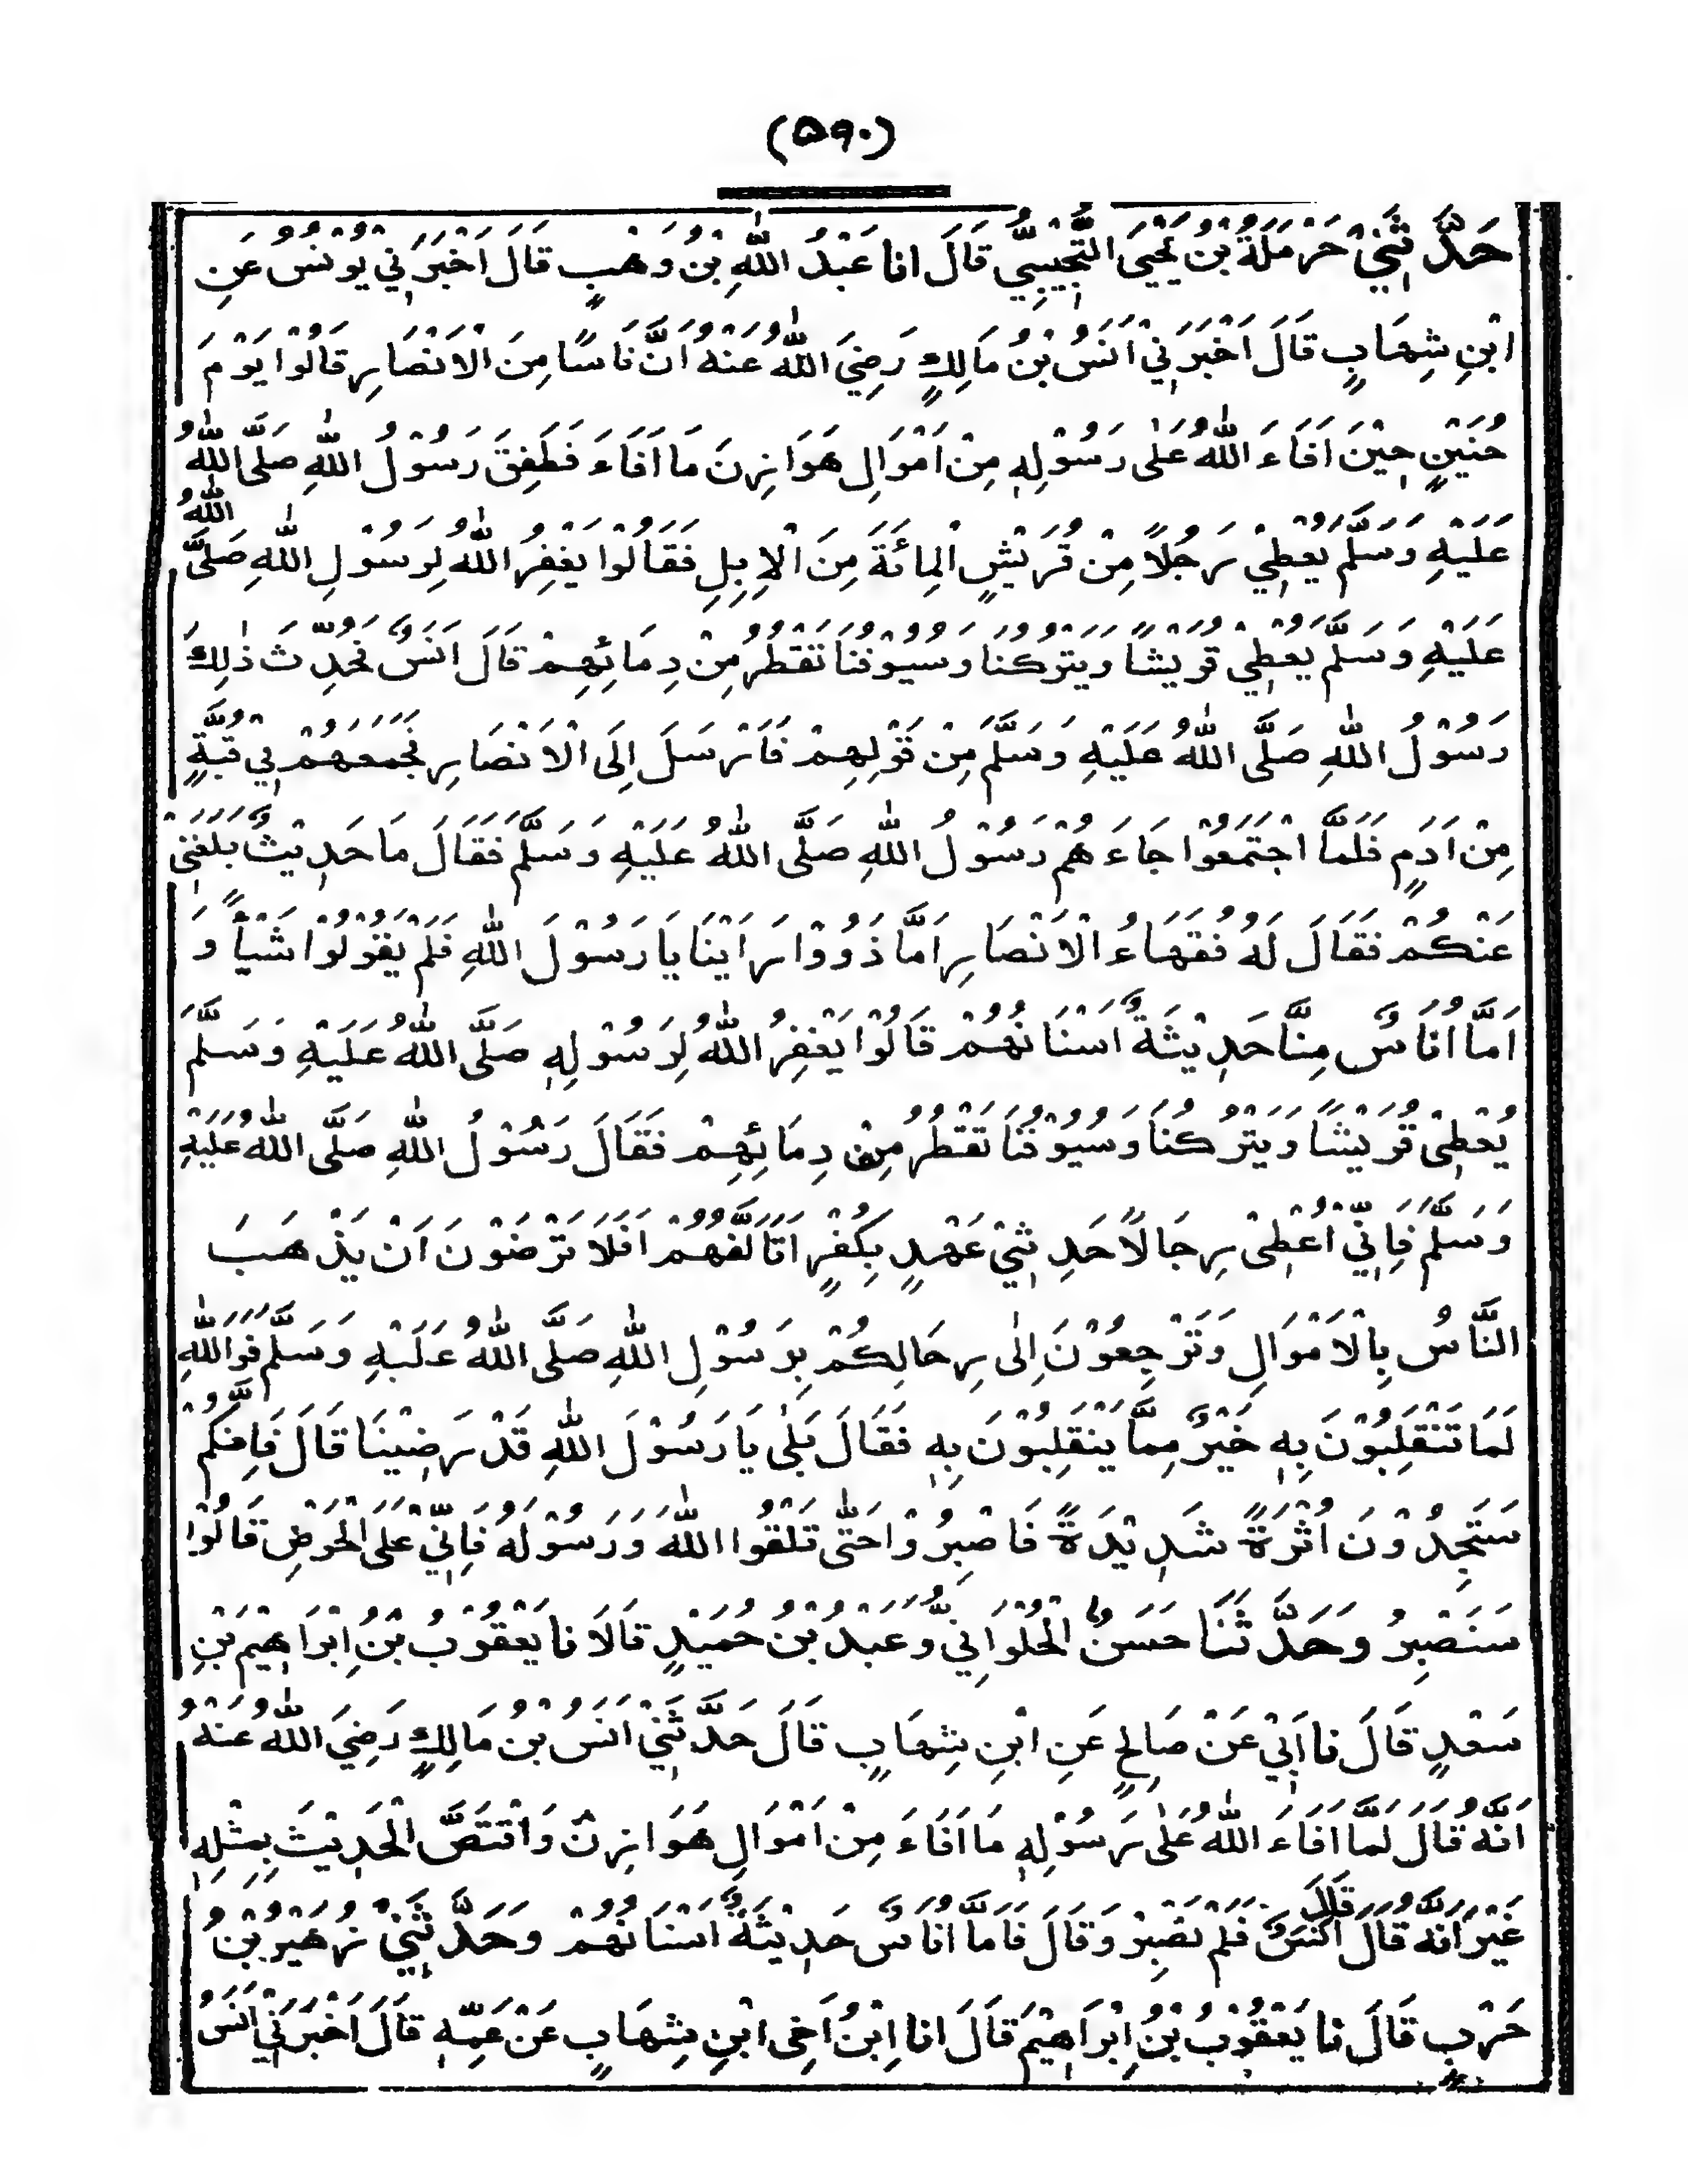 (۵۹۰)
حَدَّثَنِيْ حَرْمَلَةُ بْنُ يَحْيَى التُّجِيْبِيُّ قَالَ انا عَبْدُ اللّٰهِ بْنُ وَهْبٍ قَالَ اَخْبَرَنِيْ يُوْنُسُ عَنِ
ابْنِ شِهَابٍ قَالَ اَخْبَرَنِيْ اَنَسُ بْنُ مَالِكٍ رَضِيَ اللّٰهُ عَنْهُ اَنَّ نَاسًا مِنَ الْاَنْصَارِ قَالُوْا يَوْمَ
حُنَيْنٍ حِيْنَ اَفَاءَ اللّٰهُ عَلٰى رَسُوْلِهٖ مِنْ اَمْوَالِ هَوَازِنَ مَا اَفَاءَ فَطَفِقَ رَسُوْلُ اللّٰهِ صَلَّى اللّٰهُ
عَلَيْهِ وَسَلَّمَ يُعْطِيْ رَجُلًا مِنْ قُرَيْشٍ الْمِائَةَ مِنَ الْاِبِلِ فَقَالُوْا يَغْفِرُ اللّٰهُ لِرَسُوْلِ اللّٰهِ صَلَّى اللّٰهُ
عَلَيْهِ وَسَلَّمَ يُعْطِيْ قُرَيْشًا وَيَتْرُكُنَا وَسُيُوْفُنَا تَقْطُرُ مِنْ دِمَائِهِمْ قَالَ اَنَسٌ فَحُدِّثَ ذٰلِكَ
رَسُوْلُ اللّٰهِ صَلَّى اللّٰهُ عَلَيْهِ وَسَلَّمَ مِنْ قَوْلِهِمْ فَاَرْسَلَ اِلَى الْاَنْصَارِ فَجَمَعَهُمْ فِيْ قُبَّةٍ
مِنْ اَدَمٍ فَلَمَّا اجْتَمَعُوْا جَاءَهُمْ رَسُوْلُ اللّٰهِ صَلَّى اللّٰهُ عَلَيْهِ وَسَلَّمَ فَقَالَ مَا حَدِيْثٌ بَلَغَنِيْ
عَنْكُمْ فَقَالَ لَهُ فُقَهَاءُ الْاَنْصَارِ اَمَّا ذَوُوْا رَاْيِنَا يَا رَسُوْلَ اللّٰهِ فَلَمْ يَقُوْلُوْا شَيْـًٔا وَ
اَمَّا اُنَاسٌ مِنَّا حَدِيْثَةٌ اَسْنَانُهُمْ قَالُوْا يَغْفِرُ اللّٰهُ لِرَسُوْلِهٖ صَلَّى اللّٰهُ عَلَيْهِ وَسَلَّمَ
يُعْطِيْ قُرَيْشًا وَيَتْرُكُنَا وَسُيُوْفُنَا تَقْطُرُ مِنْ دِمَائِهِمْ فَقَالَ رَسُوْلُ اللّٰهِ صَلَّى اللّٰهُ عَلَيْهِ
وَسَلَّمَ فَاِنِّيْ اُعْطِيْ رِجَالًا حَدِيْثِيْ عَهْدٍ بِكُفْرٍ اَتَاَلَّفُهُمْ اَفَلَا تَرْضَوْنَ اَنْ يَذْهَبَ
النَّاسُ بِالْاَمْوَالِ وَتَرْجِعُوْنَ اِلٰى رِحَالِكُمْ بِرَسُوْلِ اللّٰهِ صَلَّى اللّٰهُ عَلَيْهِ وَسَلَّمَ فَوَاللّٰهِ
لَمَا تَنْقَلِبُوْنَ بِهٖ خَيْرٌ مِمَّا يَنْقَلِبُوْنَ بِهٖ فَقَالَ بَلٰى يَا رَسُوْلَ اللّٰهِ قَدْ رَضِيْنَا قَالَ فَاِنَّكُمْ
سَتَجِدُوْنَ اُثْرَةً شَدِيْدَةً فَاصْبِرُوْا حَتّٰى تَلْقَوُا اللّٰهَ وَرَسُوْلَهُ فَاِنِّيْ عَلَى الْحَوْضِ قَالُوْا
سَنَصْبِرُ وَحَدَّثَنَا حَسَنٌ الْحُلْوَانِيُّ وَعَبْدُ بْنُ حُمَيْدٍ قَالَا نا يَعْقُوْبُ بْنُ اِبْرَاهِيْمَ بْنِ
سَعْدٍ قَالَ نا اَبِيْ عَنْ صَالِحٍ عَنِ ابْنِ شِهَابٍ قَالَ حَدَّثَنِيْ اَنَسُ بْنُ مَالِكٍ رَضِيَ اللّٰهُ عَنْهُ
اَنَّهُ قَالَ لَمَّا اَفَاءَ اللّٰهُ عَلٰى رَسُوْلِهٖ مَا اَفَاءَ مِنْ اَمْوَالِ هَوَازِنَ وَاقْتَصَّ الْحَدِيْثَ بِمِثْلِهٖ
غَيْرَ اَنَّهُ قَالَ قَالَ اَنَسٌ فَلَمْ نَصْبِرْ وَقَالَ فَاَمَّا اُنَاسٌ حَدِيْثَةٌ اَسْنَانُهُمْ وَحَدَّثَنِيْ زُهَيْرُ بْنُ
حَرْبٍ قَالَ نا يَعْقُوْبُ بْنُ اِبْرَاهِيْمَ قَالَ انا اِبْنُ اَخِى ابْنِ شِهَابٍ عَنْ عَمِّهٖ قَالَ اَخْبَرَنِيْ اَنَسُ